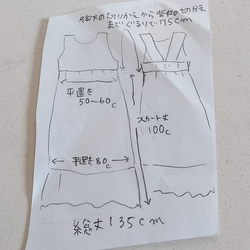 胸下の切りかえから背中の切りかえ
までぐるりで75cm
平置き
50~60c
スカート丈
100c
平置き80c
総丈135cm